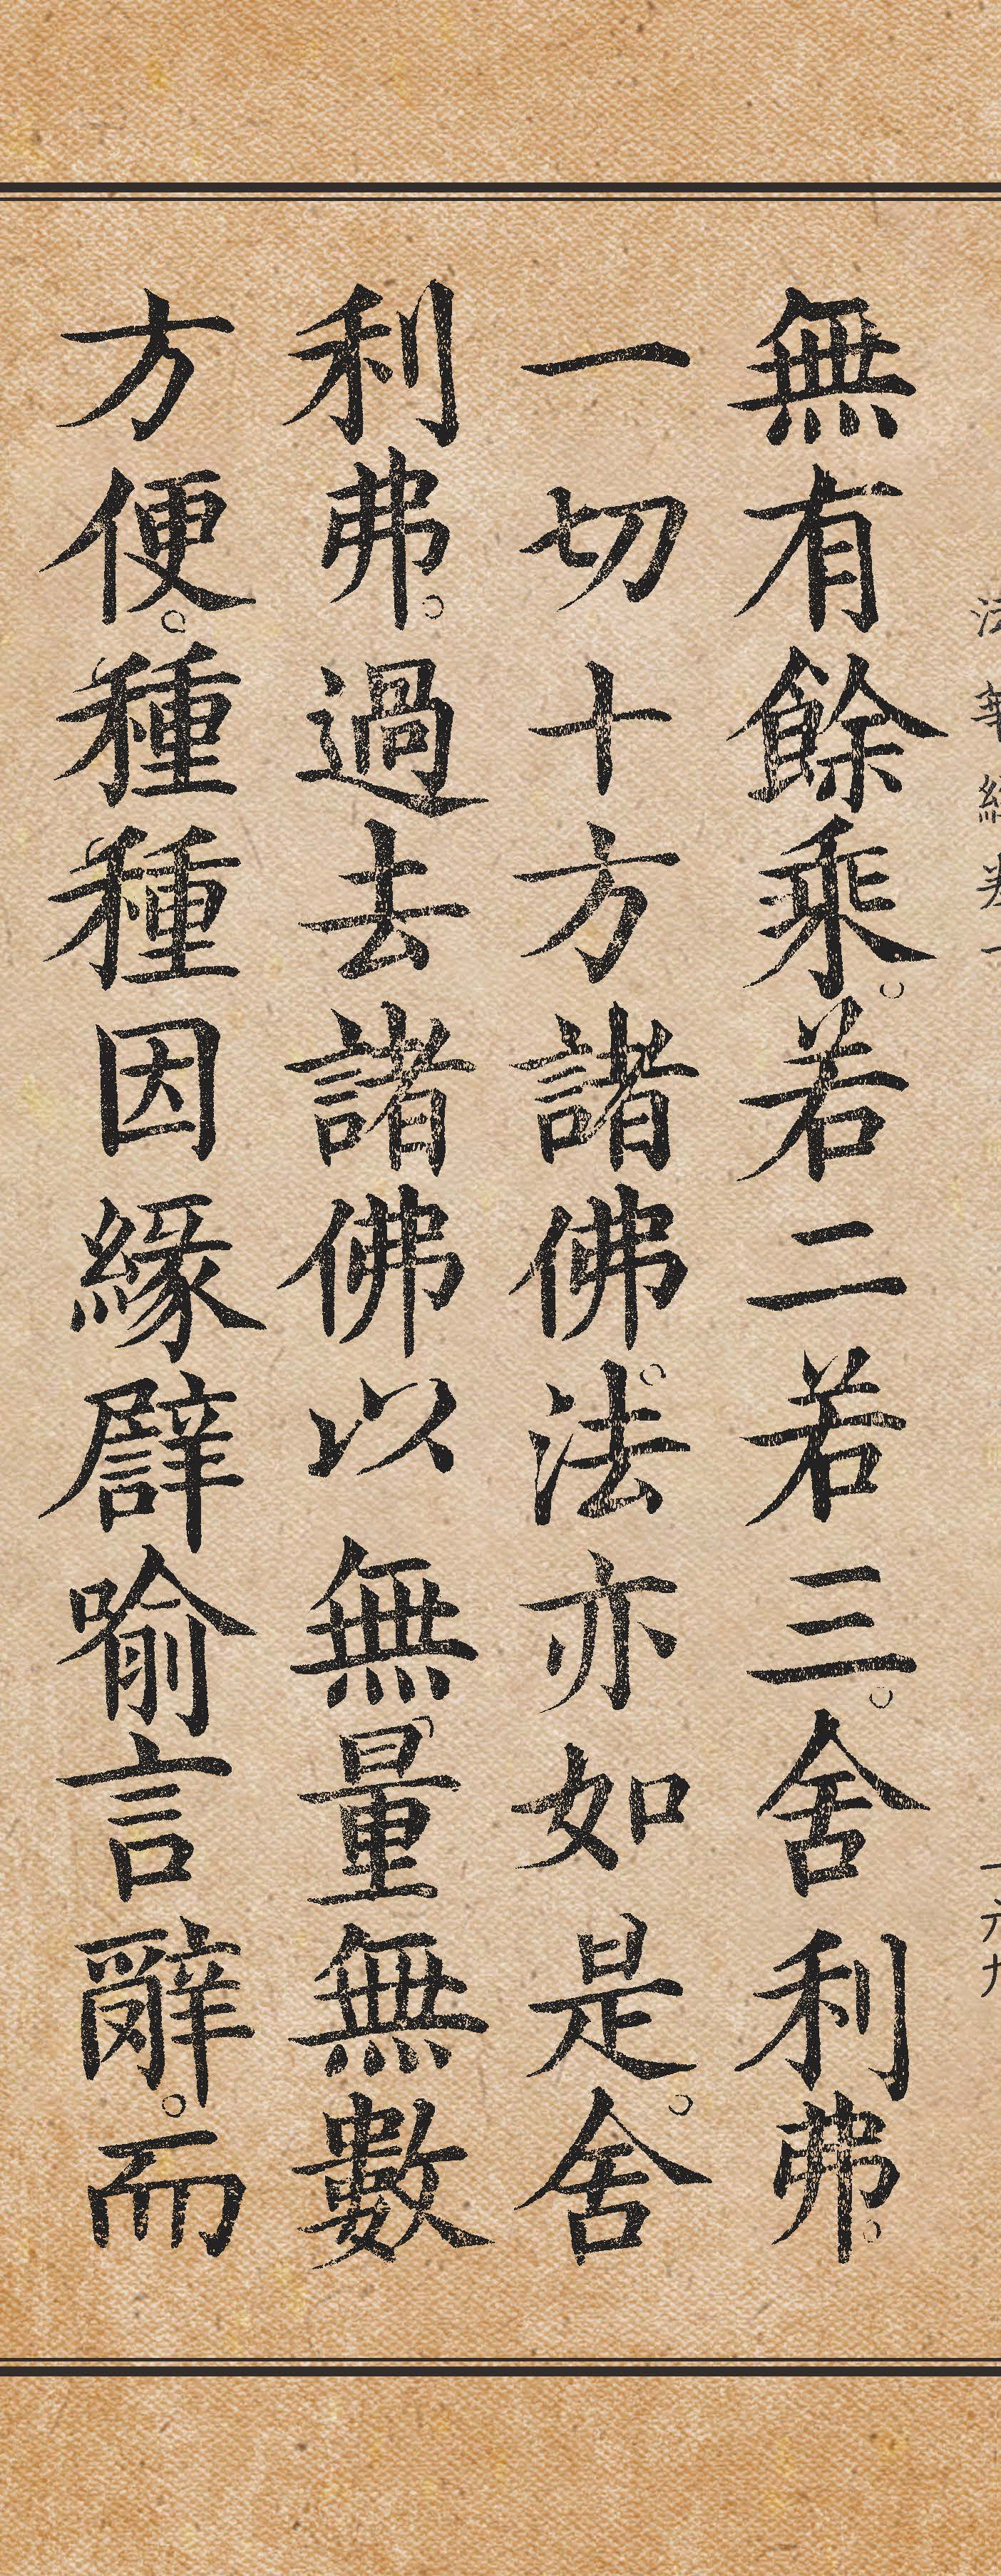 無有餘乘。若二若三。舍利弗。
一切十方諸佛。法亦如是。舍
利弗。過去諸佛以無量無數
方便。種種因緣譬喻言辭。而